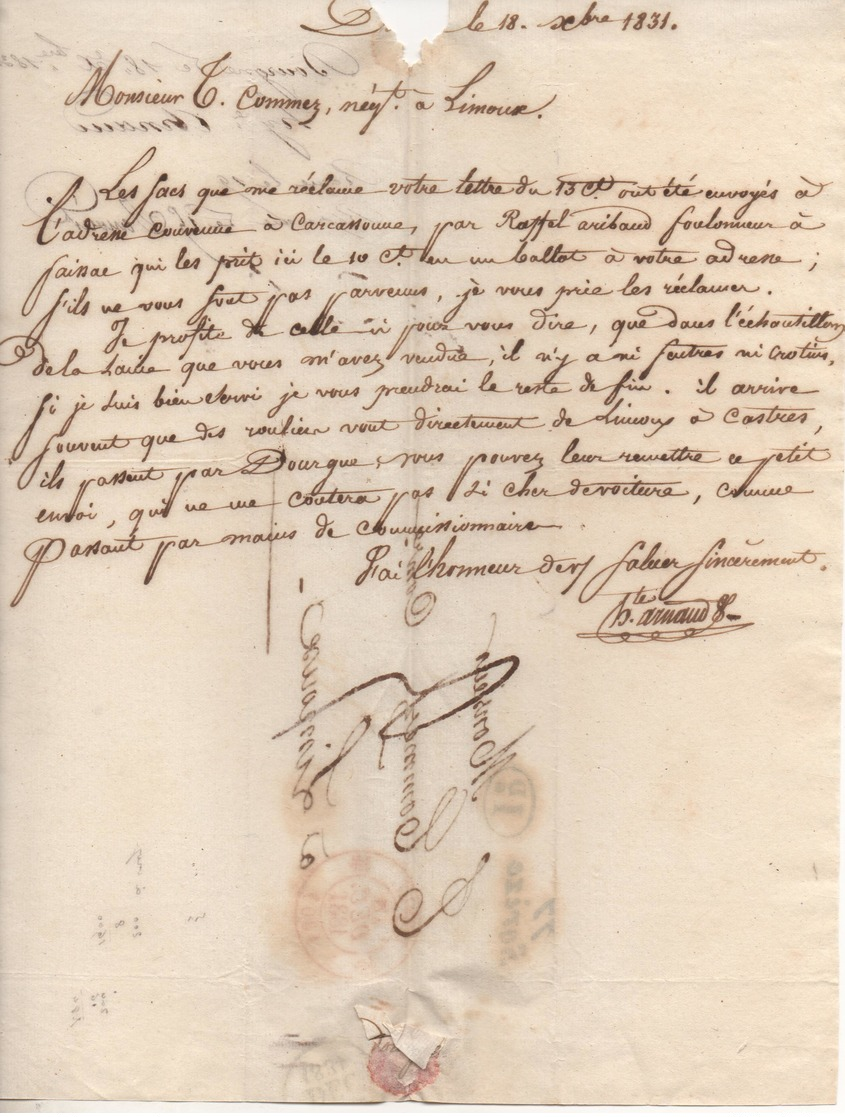 D le 18. xbre 1831.
Monsieur T. Commez, négt. à Limoux.
Les sacs que me réclame votre lettre du 13 Ct. ont été envoyés à
l'adresse convenue à Carcassonne, par Raffel aribaud foulonneur à
saissac qui les prit ici le 10 Ct. en un ballot à votre adresse ;
s'ils ne vous sont pas parvenus, je vous prie les réclamer.
Je profite de celle ci pour vous dire, que dans l'échantillon
de la Laine que vous m'avez vendue, il n'y a ni feutres ni crotins,
si je suis bien servi je vous prendrai le reste de fin. il arrive
souvent que des rouliers vont directement de Limoux à Castres,
ils passent par Dourgne, vous pouvez leur remettre ce petit
envoi, qui ne me coutera pas si cher de voiture, comme
passant par mains de commissionnaire
J'ai l'honneur de vs saluer sincèrement.
hte. arnaud